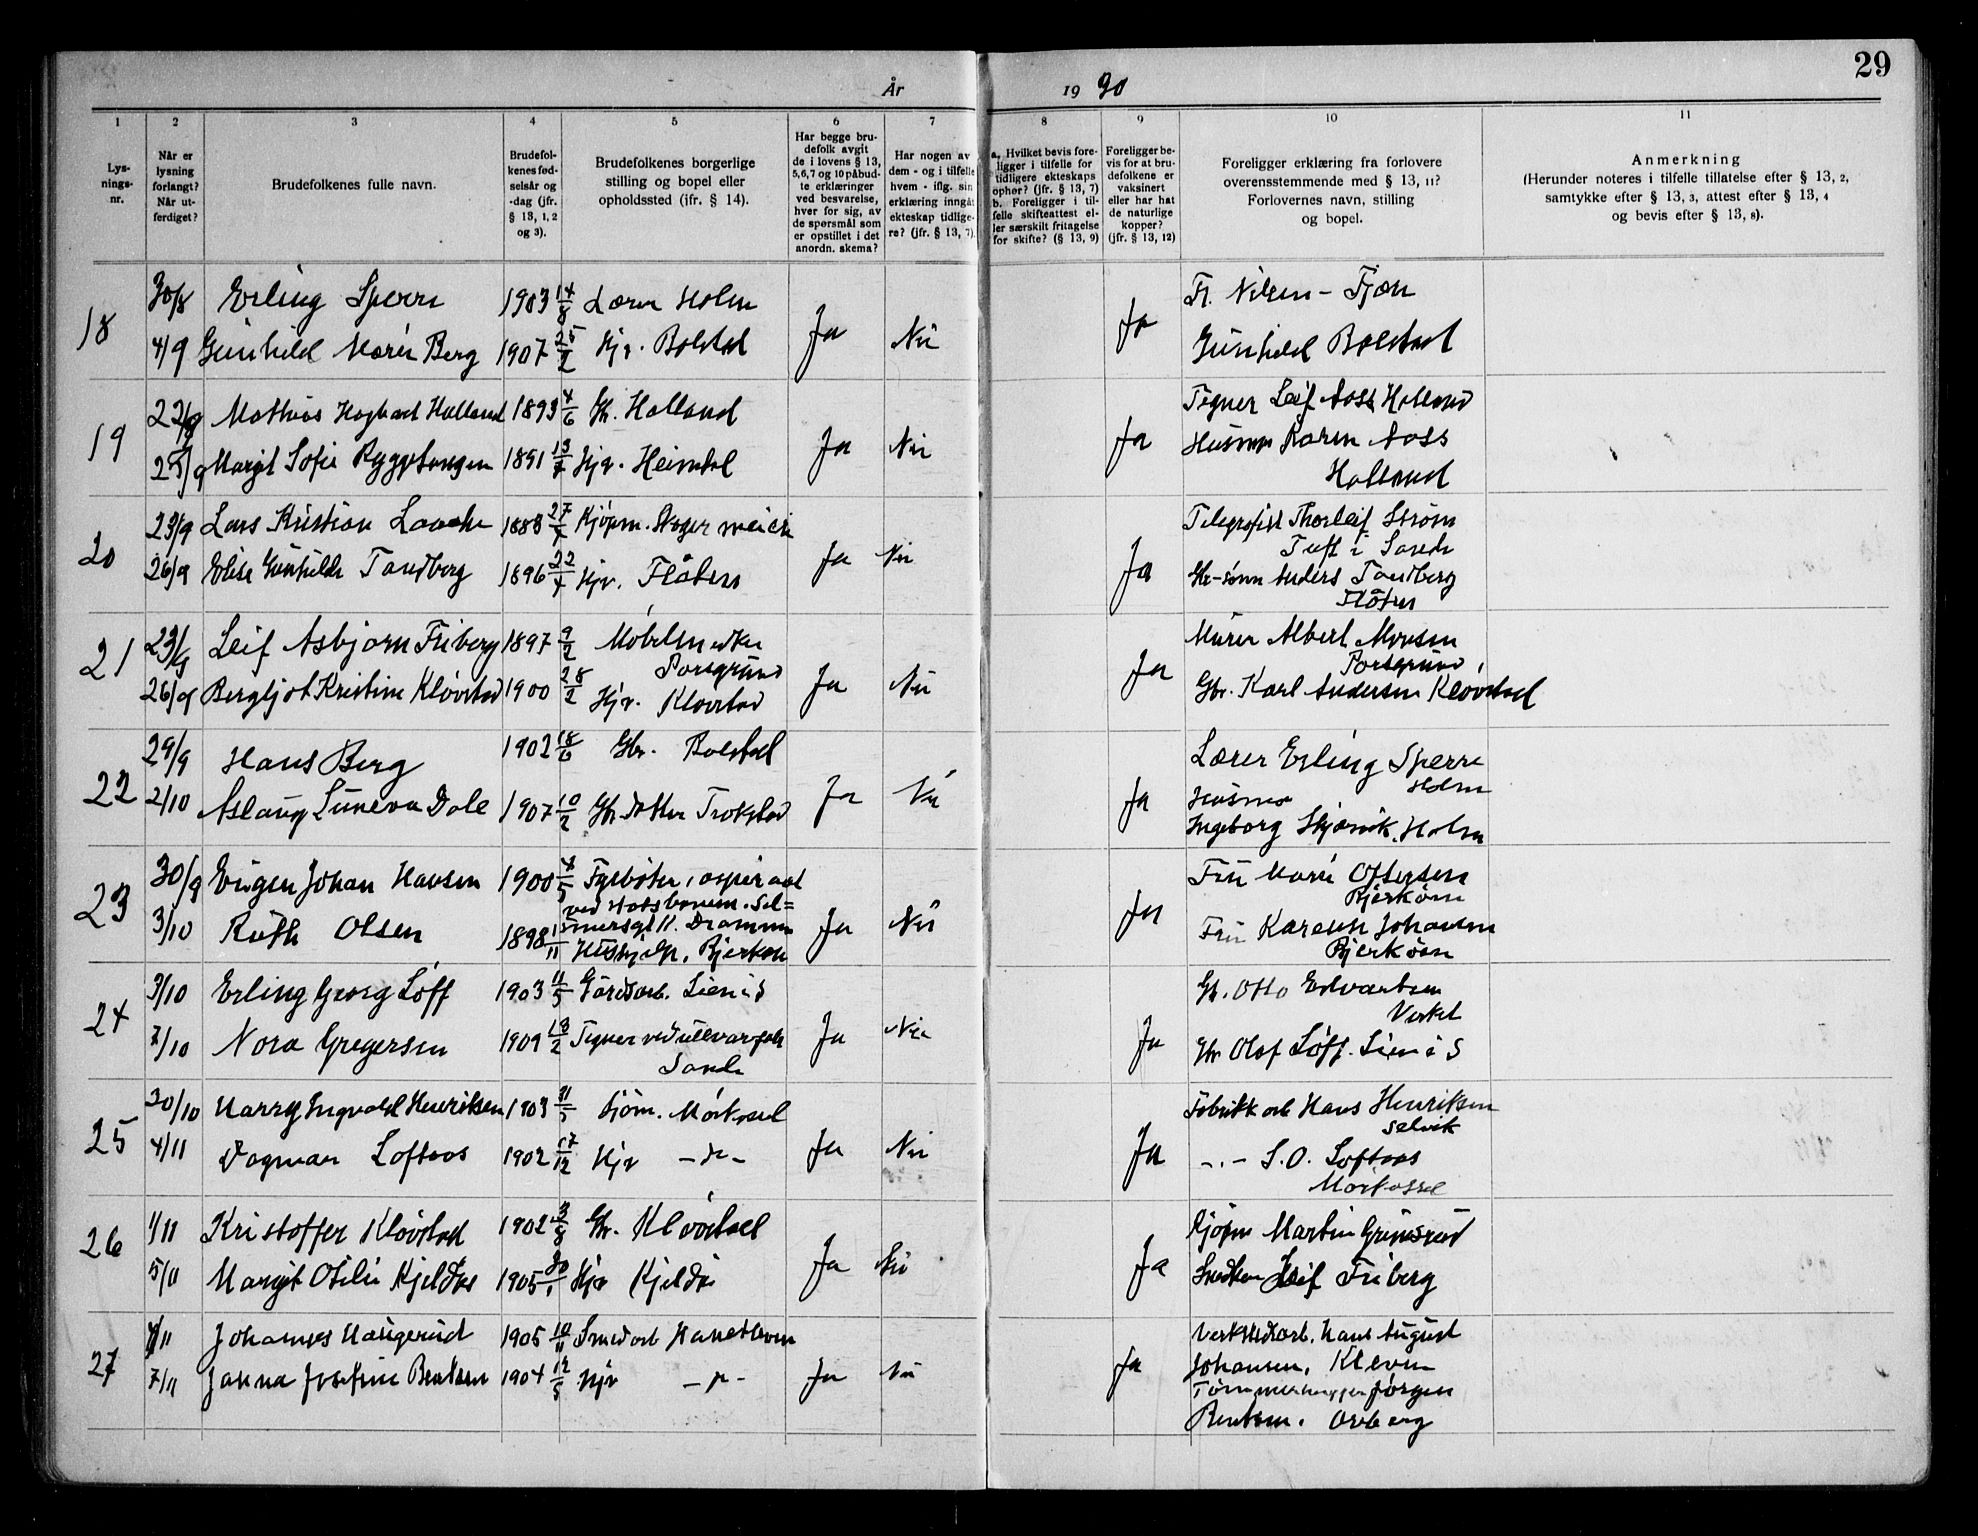 29
År 1930
1
2
3
4
5
6
7
8
9
10
11
Lys-
nings-
nr.
Når er
lysning
forlangt?
Når ut-
ferdiget?
Brudefolkenes fulle navn.
Brudefol-
kenes fød-
selsår og
-dag (jfr.
§ 13, 1, 2
og 3).
Brudefolkenes borgerlige
stilling og bopel eller
opholdssted (ifr. § 14).
Har begge bru-
defolk avgit
de i lovens § 13,
5,6,7 og 10 påbud-
te erklæringer
ved besvarelse,
hver for sig, av
de spørsmål som
er opstillet i det
anordn. skema?
Har nogen av
dem - og i tilfelle
hvem - iflg. sin
erklæring inngåt
ekteskap tidlige-
re? (jfr. § 13, 7).
a. Hvilket bevis fore-
ligger i tilfelle for
tidligere ekteskaps
ophør? (jfr. § 13, 7)
b. Foreligger i til-
felle skifteattest el-
ler særskilt fritagelse
for skifte? (§ 13, 9)
Foreligger be-
vis for at bru-
defolkene er
vaksinert
eller har hat
de naturlige
kopper?
(jfr. § 13, 12)
Foreligger erklæring fra forlovere
overensstemmende med § 13, 11?
Forlovernes navn, stilling
og bopel.
Anmerkning
(Herunder noteres i tilfelle tillatelse efter § 13, 2,
samtykke efter § 13, 3, attest efter § 13, 4
og bevis efter § 13, 8).
18
30/8 Erling Sperre 1903 14/8 Lærer Holm
4/9 Gunhild Marie Berg 1907 25/2 Hjv. Bolstad
Ja Nei Ja
Fr. Nilsen - Fjæn
Gunhild Bolstad
19
22/9 Mathias Hagbart Holland 1893 4/6 Gbr. Holland
25/9 Margit Sofie Ryggetangen 1891 13/7 Hjv. Heimdal
Ja Nei Ja
Tegner Leif Aass Holland
Husmor Karen Aass
Holland
20
23/9 Lars Kristian Laache 1888 27/7 Kjøpm. Skoger meieri
26/9 Elise Gunhilde Tandberg 1896 22/4 Hjv. Flåten
Ja Nei Ja
Telegrafist Thorleif Strøm
Tuft i Sande
Gbr-sønn Anders Tandberg
Flåten
21
23/9 Leif Asbjørn Friberg 1897 9/2 Møbelsnedker
Porsgrund
26/9 Bergljot Kristine Kløvstad 1900 28/2 Hjv. Kløvstad
Ja Nei Ja
Murer Albert
Porsgrund
Gbr. Karl Andersen Kløvstad
22
29/9 Hans Berg 1902 18/6 Gbr. Bolstad
2/10 Aslaug Suneva Dale 1907 10/2 Gbr.datter Trokstad
Ja Nei Ja
Lærer Erling Sperre
Holm
Husmor
Ingeborg Skjærvik. Holm
23
30/9 Eugen Johan Hansen 1900 4/5 Fyrbøter, aspirant
ved statsbanen. Sel=
mersgt 11. Drammen
3/10 Ruth Olsen 1898 1/11 Bjerkøen
Ja Nei Ja
Fru Marie Ottersen
Bjerkøen
Fru Karense Johansen
Bjerkøen
24
3/10 Erling Georg Løff 1903 11/5 Gårdsarb. Lien i S
7/10 Nora Gregersen 1909 18/2 Tegner ved ullvarefabr
Sande
Ja Nei Ja
Gbr. Otto Edvardsen
Verket
Gbr Olaf Løff. Lien i S
25
30/10 Harry Ingvald Henriksen 1903 31/5 Sjøm. Mørkassel
4/11 Dagmar Loftaas 1902 17/12 Hjv -"-
Ja Nei Ja
Fabrikkarb Hans Henriksen
Selvik
-"- S.O. Loftaas
Mørkassel
26
1/11 Kristoffer Kløvstad 1902 3/8 Gbr. Kløvstad
5/11 Margit Otilie Kjeldås 1905 30/1 Hjv Kjeldås
Ja Nei Ja
Kjøpm Martin Grimsrud
Snedker Leif Friberg
27
4/11 Johannes Haugerud 1905 10/11 Smedarb Hanekleven
7/11 Janna Josefine Bentsen 1904 12/5 Hjv -"-
Ja Nei Ja
Verkstedarb. Hans August
Johansen. Kleven
Tømmerhugger Jørgen
Bentsen. Oreberg